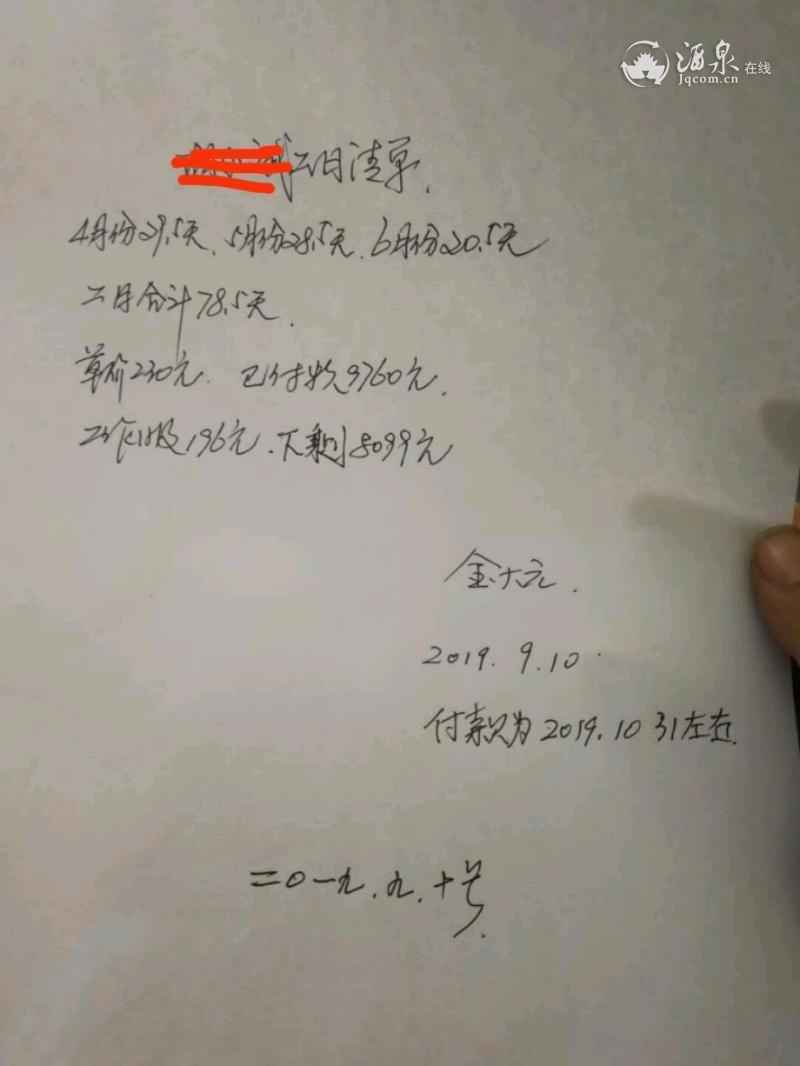 酒泉在线
Jqcom.cn
工日清单.
4月份29.5天、5月份28.5天、6月份20.5天
工日合计78.5天.
单价230元. 已付款9760元.
工作服196元.下剩8099元
金大元.
2019.9.10.
付款为2019.10 31左右.
二0一九.九.十号.